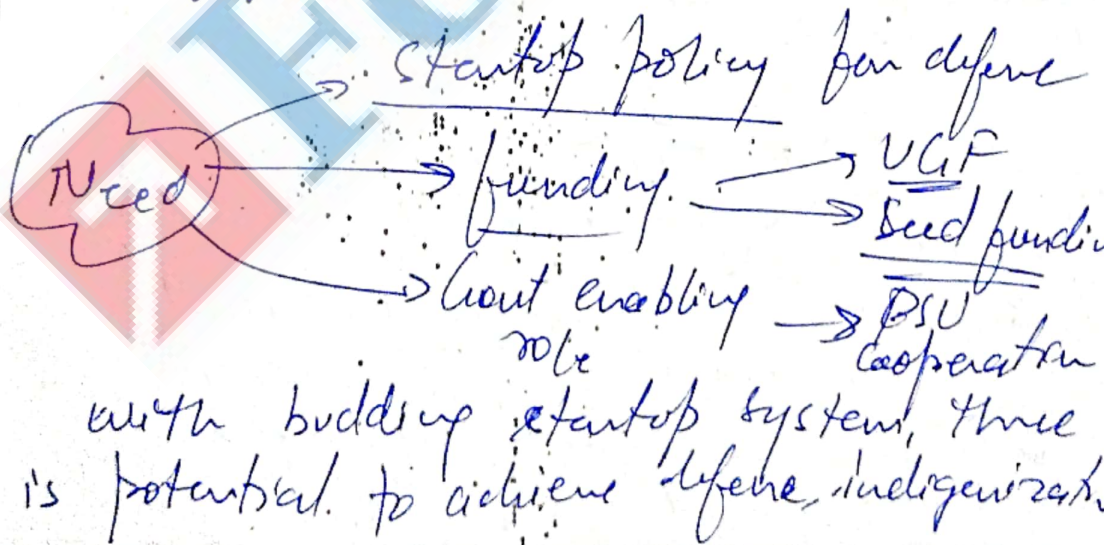 startup policy for defence
Need
funding
VGF
Seed fundin
Govt enabling
role
PSU
Cooperation
with budding startup system, there
is potential to achieve defence indigenizatn